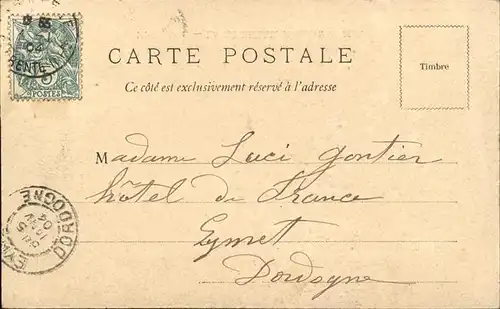 CARTE POSTALE
Ce côté est exclusivement réservé à l'adresse
Timbre
5
POSTES
Madame Luci Gontier
hôtel de France
Eymet
Dordogne
DORDOGNE
04